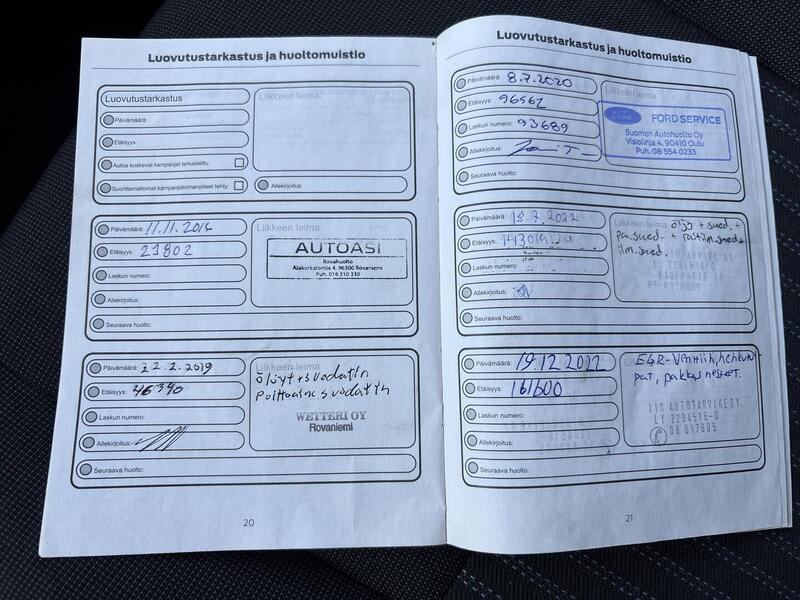 Luovutustarkastus ja huoltomuistio
Luovutustarkastus
Päivämäärä:
Etäisyys:
Autoa koskevat kampanjat tarkastettu:
Suorittamattomat kampanjatoimenpiteet tehty:
Liikkeen leima
Allekirjoitus:
Päivämäärä: 11.11.2016
Etäisyys: 21802
Laskun numero:
Allekirjoitus:
Seuraava huolto:
Liikkeen leima
AUTOASI
Rovahuolto
Alakorkalontie 4, 96300 Rovaniemi
Puh. 016 310 330
Päivämäärä: 12.2.2019
Etäisyys: 46340
Laskun numero:
Allekirjoitus:
Seuraava huolto:
Liikkeen leima
öljyt + suodatin
Polttoaine suodatin
WETTERI OY
Rovaniemi
20
Luovutustarkastus ja huoltomuistio
Päivämäärä: 8.7.2020
Etäisyys: 96562
Laskun numero: 93689
Allekirjoitus:
Seuraava huolto:
Liikkeen leima
Ford FORD SERVICE
Suomen Autohuolto Oy
Visiolinja 4, 90410 Oulu
Puh. 08 554 0233
Päivämäärä: 13.7.2022
Etäisyys: 143019
Laskun numero:
Allekirjoitus:
Seuraava huolto:
Liikkeen leima
öljy + suod. +
pa.suod. + raitilm.suod +
ilm.suod.
Päivämäärä: 19.12.2022
Etäisyys: 161600
Laskun numero:
Allekirjoitus:
Seuraava huolto:
Liikkeen leima
EGR-Venttiili, hehkutul-
pat, pakkasnesteet.
IIN AUTOTARVIKE OY
LY 2294516-0
08 817605
21